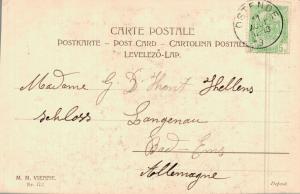 CARTE POSTALE
POSTKARTE – POST CARD – CARTOLINA POSTALE
LEVELEZŐ-LAP.
OSTENDE
Madame G D'Hont Hellens
Schloss Langenau
Bad-Ems
Allemagne
M. M. VIENNE.
Nr. 112
Déposé